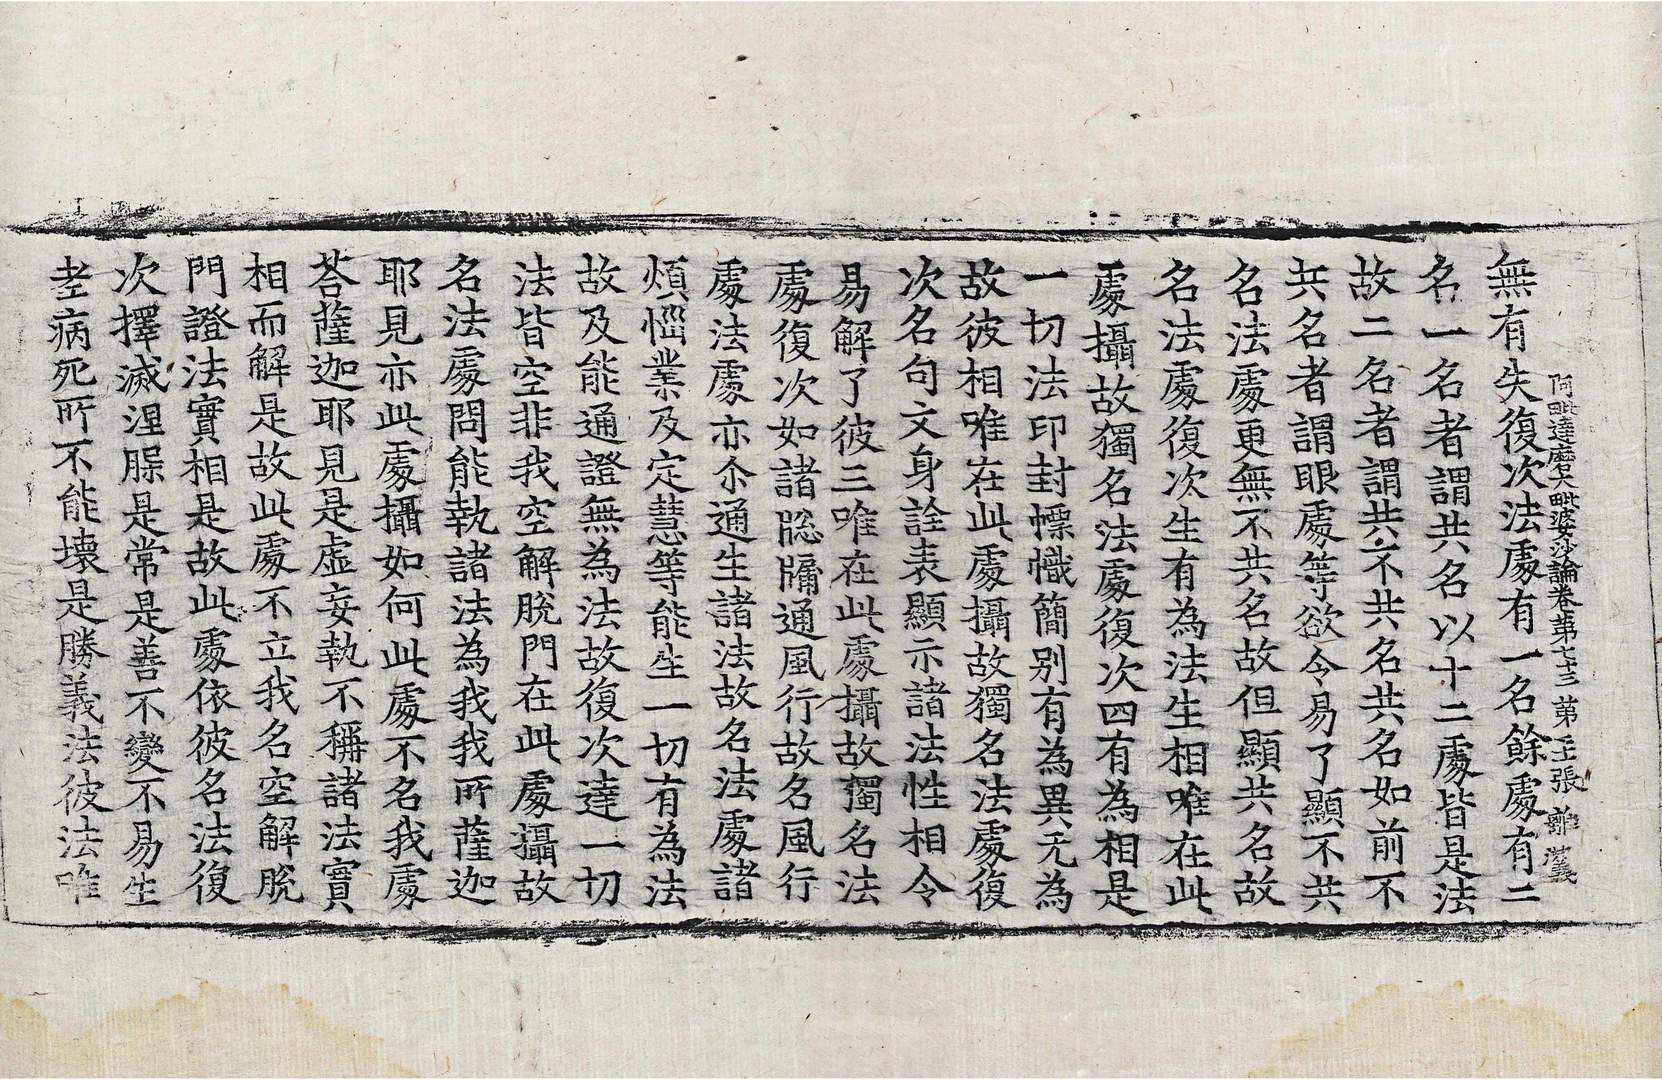 阿毗達磨大毗婆沙論卷第七十三 第五張 離
無有失復次法處有一名餘處有二
名一名者謂共名以十二處皆是法
故二名者謂共不共名共名如前不
共名者謂眼處等欲令易了顯不共
名法處更無不共名故但顯共名故
名法處復次生有為法生相唯在此
處攝故獨名法處復次四有為相是
一切法印封幖幟簡别有為異无為
故彼相唯在此處攝故獨名法處復
次名句文身詮表顯示諸法性相令
易解了彼三唯在此處攝故獨名法
處復次如諸牕牗通風行故名風行
處法處亦尒通生諸法故名法處諸
煩惱業及定慧等能生一切有為法
故及能通證無為法故復次達一切
法皆空非我空解脫門在此處攝故
名法處問能執諸法為我我所薩迦
耶見亦此處攝如何此處不名我處
荅薩迦耶見是虛妄執不稱諸法實
相而解是故此處不立我名空解脫
門證法實相是故此處依彼名法復
次擇滅涅槃是常是善不變不易生
老病死所不能壞是勝義法彼法唯